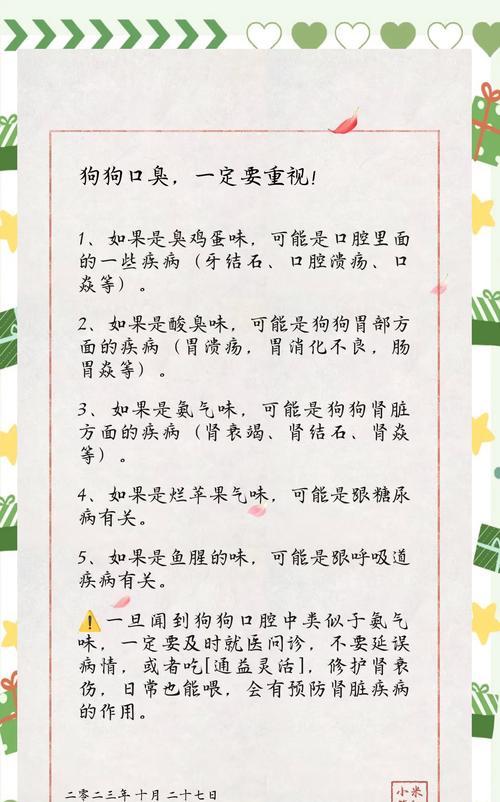 狗狗口臭，一定要重视！
1、如果是臭鸡蛋味，可能是口腔里面
的一些疾病（牙结石、口腔溃疡、口
焱等）。
2、如果是酸臭味，可能是狗狗胃部方
面的疾病（胃溃疡，胃消化不良，肠
胃焱等）。
3、如果是氨气味，可能是狗狗肾脏
方面的疾病（肾衰竭、肾结石、肾焱
等）。
4、如果是烂苹果气味，可能是跟糖尿
病有关。
5、如果是鱼腥的味，可能是跟呼吸道
疾病有关。
⚠️一旦闻到狗狗口腔中类似于氨气
味，一定要及时就医问诊，不要延误
病情，或者吃[通益灵活]，修护肾衰
伤，日常也能喂，会有预防肾脏疾病
的作用。
二零二三年十月二十七日
小米